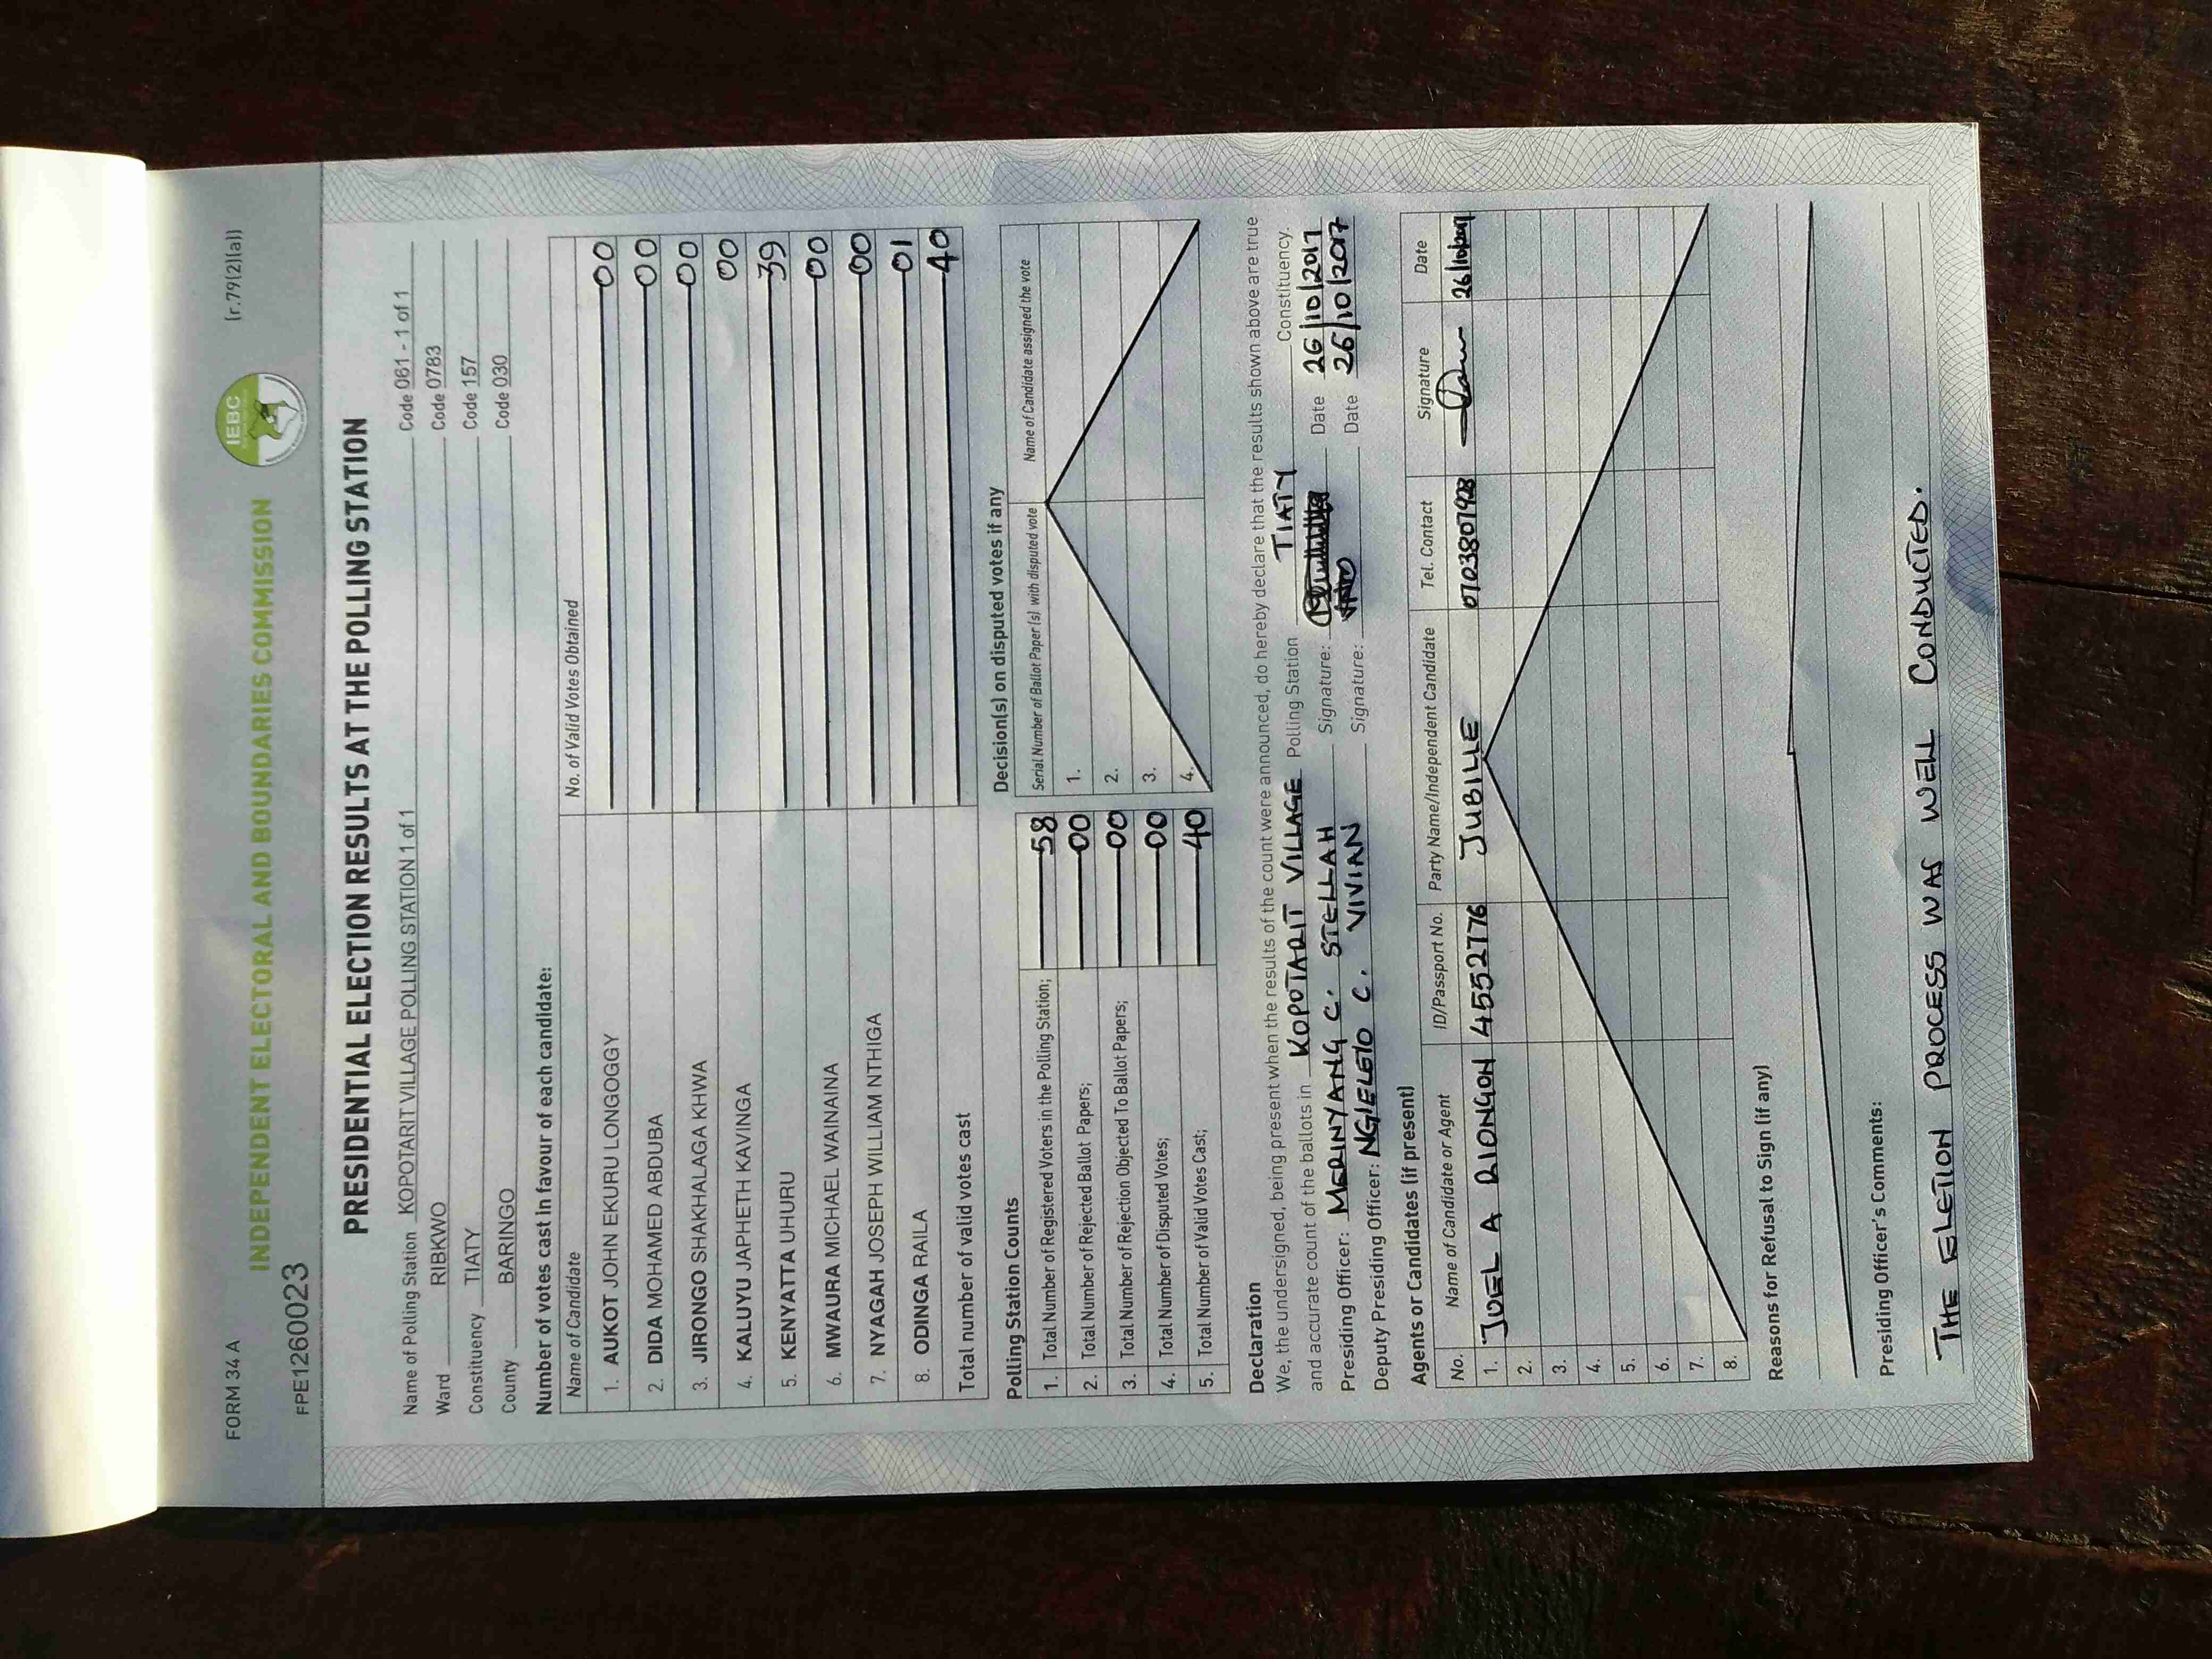 FORM 34 A
INDEPENDENT ELECTORAL AND BOUNDARIES COMMISSION
IEBC
(r.79(2)(a))
FPE1260023
PRESIDENTIAL ELECTION RESULTS AT THE POLLING STATION
Name of Polling Station KOPOTARIT VILLAGE POLLING STATION 1 of 1 Code 061 - 1 of 1
Ward RIBKWO Code 0783
Constituency TIATY Code 157
County BARINGO Code 030
Number of votes cast in favour of each candidate:
Name of Candidate No. of Valid Votes Obtained
1. AUKOT JOHN EKURU LONGOGGY 00
2. DIDA MOHAMED ABDUBA 00
3. JIRONGO SHAKHALAGA KHWA 00
4. KALUYU JAPHETH KAVINGA 00
5. KENYATTA UHURU 39
6. MWAURA MICHAEL WAINAINA 00
7. NYAGAH JOSEPH WILLIAM NTHIGA 00
8. ODINGA RAILA 01
Total number of valid votes cast 40
Polling Station Counts
1. Total Number of Registered Voters in the Polling Station; 58
2. Total Number of Rejected Ballot Papers; 00
3. Total Number of Rejection Objected To Ballot Papers; 00
4. Total Number of Disputed Votes; 00
5. Total Number of Valid Votes Cast; 40
Decision(s) on disputed votes if any
Serial Number of Ballot Paper(s) with disputed vote Name of Candidate assigned the vote
1.
2.
3.
4.
Declaration
We, the undersigned, being present when the results of the count were announced, do hereby declare that the results shown above are true
and accurate count of the ballots in KOPOTARIT VILLAGE Polling Station TIATY Constituency.
Presiding Officer: MERINYANG C. STELLAH Signature: Date 26/10/2017
Deputy Presiding Officer: NGIELEIO C. VIVIAN Signature: Date 26/10/2017
Agents or Candidates (if present)
No. Name of Candidate or Agent ID/Passport No. Party Name/Independent Candidate Tel. Contact Signature Date
1. JOEL A RIONGON 4552776 JUBILLE 0703807928 26/10/2017
2.
3.
4.
5.
6.
7.
8.
Reasons for Refusal to Sign (if any)
Presiding Officer's Comments:
THE ELETION PROCESS WAS WELL CONDUCTED.